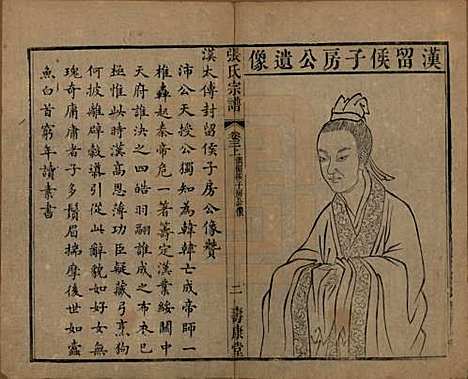 漢留侯子房公遺像
張氏宗譜
卷三上
二
壽康堂
漢太傅封留侯子房公像贊
沛公天授公獨知為韓韓亡成帝師一
椎轟起秦帝危一著籌定漢業綏關中
天府誰決之四皓羽翮誰成之布衣已
極惟此時漢高恩薄功臣疑藏弓烹狗
何披離辟穀導引從此辭貌如好女
瑰奇庸庸者子多鬚眉揣摩後世如蠡
魚白首窮年讀素書